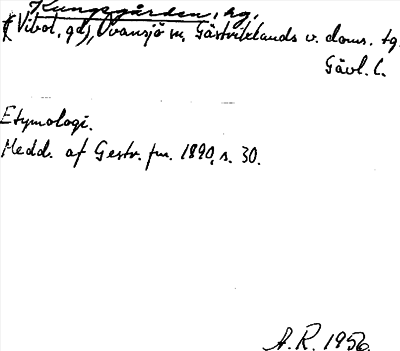 Kungsgården, hg.
(Vibol, gd), Ovansjö sn, Gästriklands v. doms. tg.
Gävl. l.
Etymologi.
Medd. af Gestr. fm. 1890, s. 30.
A.R. 1956.